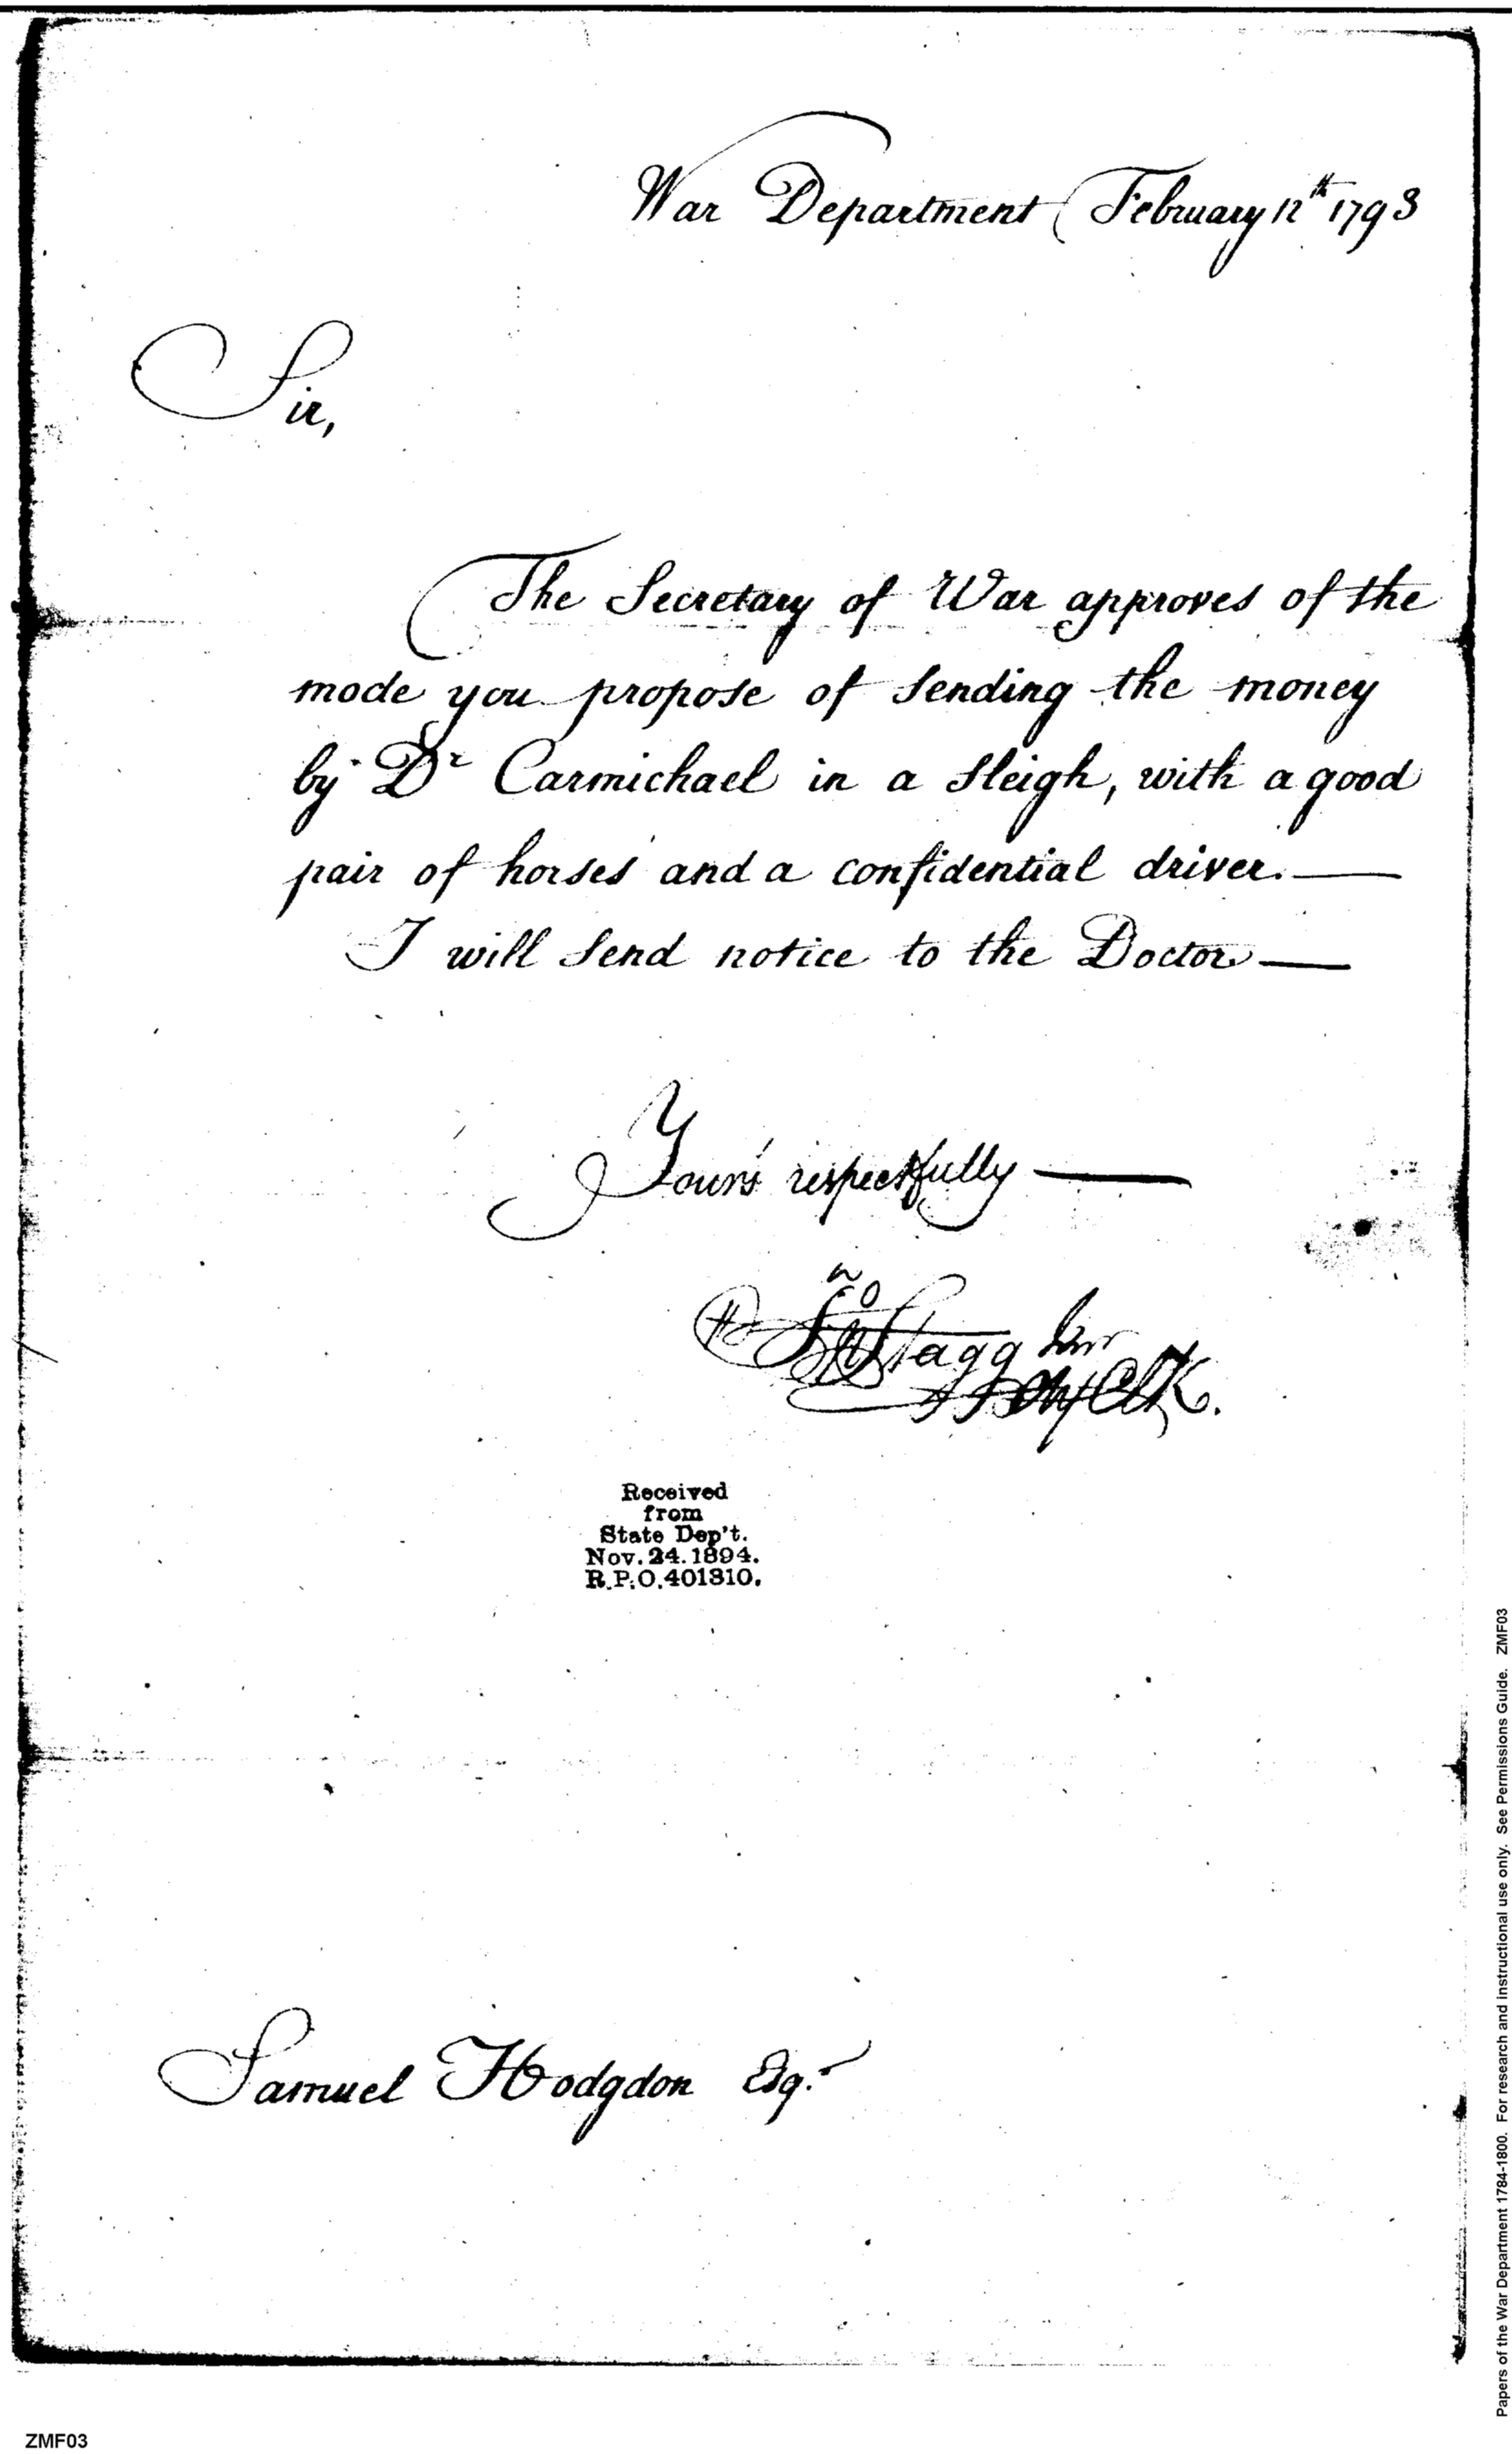 War Department February 12th 1793
Sir,
The Secretary of War approves of the
mode you propose of sending the money
by Dr Carmichael in a sleigh, with a good
pair of horses and a confidential driver.—
I will send notice to the Doctor—
Yours respectfully—
Jno Stagg Junr
Chf Clk.
Received
from
State Dep't.
Nov. 24. 1894.
R.P.O. 401310.
Samuel Hodgdon Esqr
ZMF03
Papers of the War Department 1784-1800. For research and instructional use only. See Permissions Guide. ZMF03